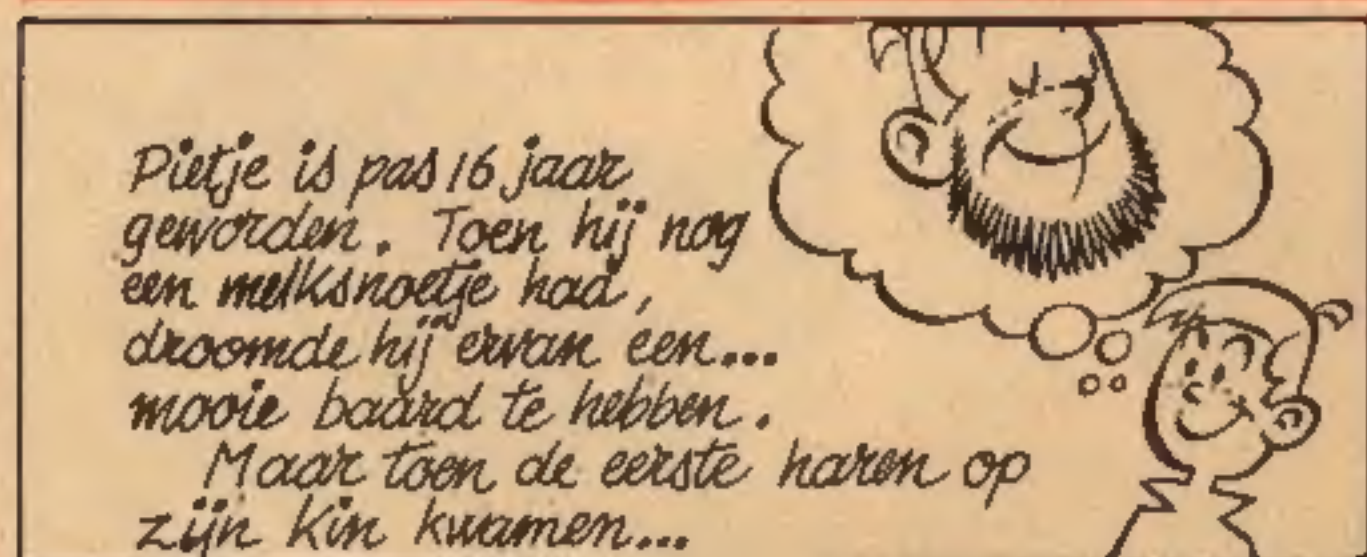 Pietje is pas 16 jaar
geworden. Toen hij nog
een melksnoetje had,
droomde hij ervan een...
mooie baard te hebben.
Maar toen de eerste haren op
zijn kin kwamen...